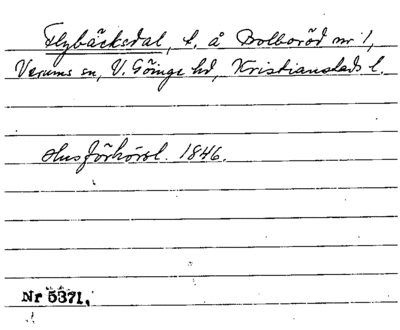 Flybäcksdal, t. å Bolboröd nr 1,
Verums sn, V. Göinge hd, Kristianstads l.
Husförhörsl. 1846.
Nr 5371.